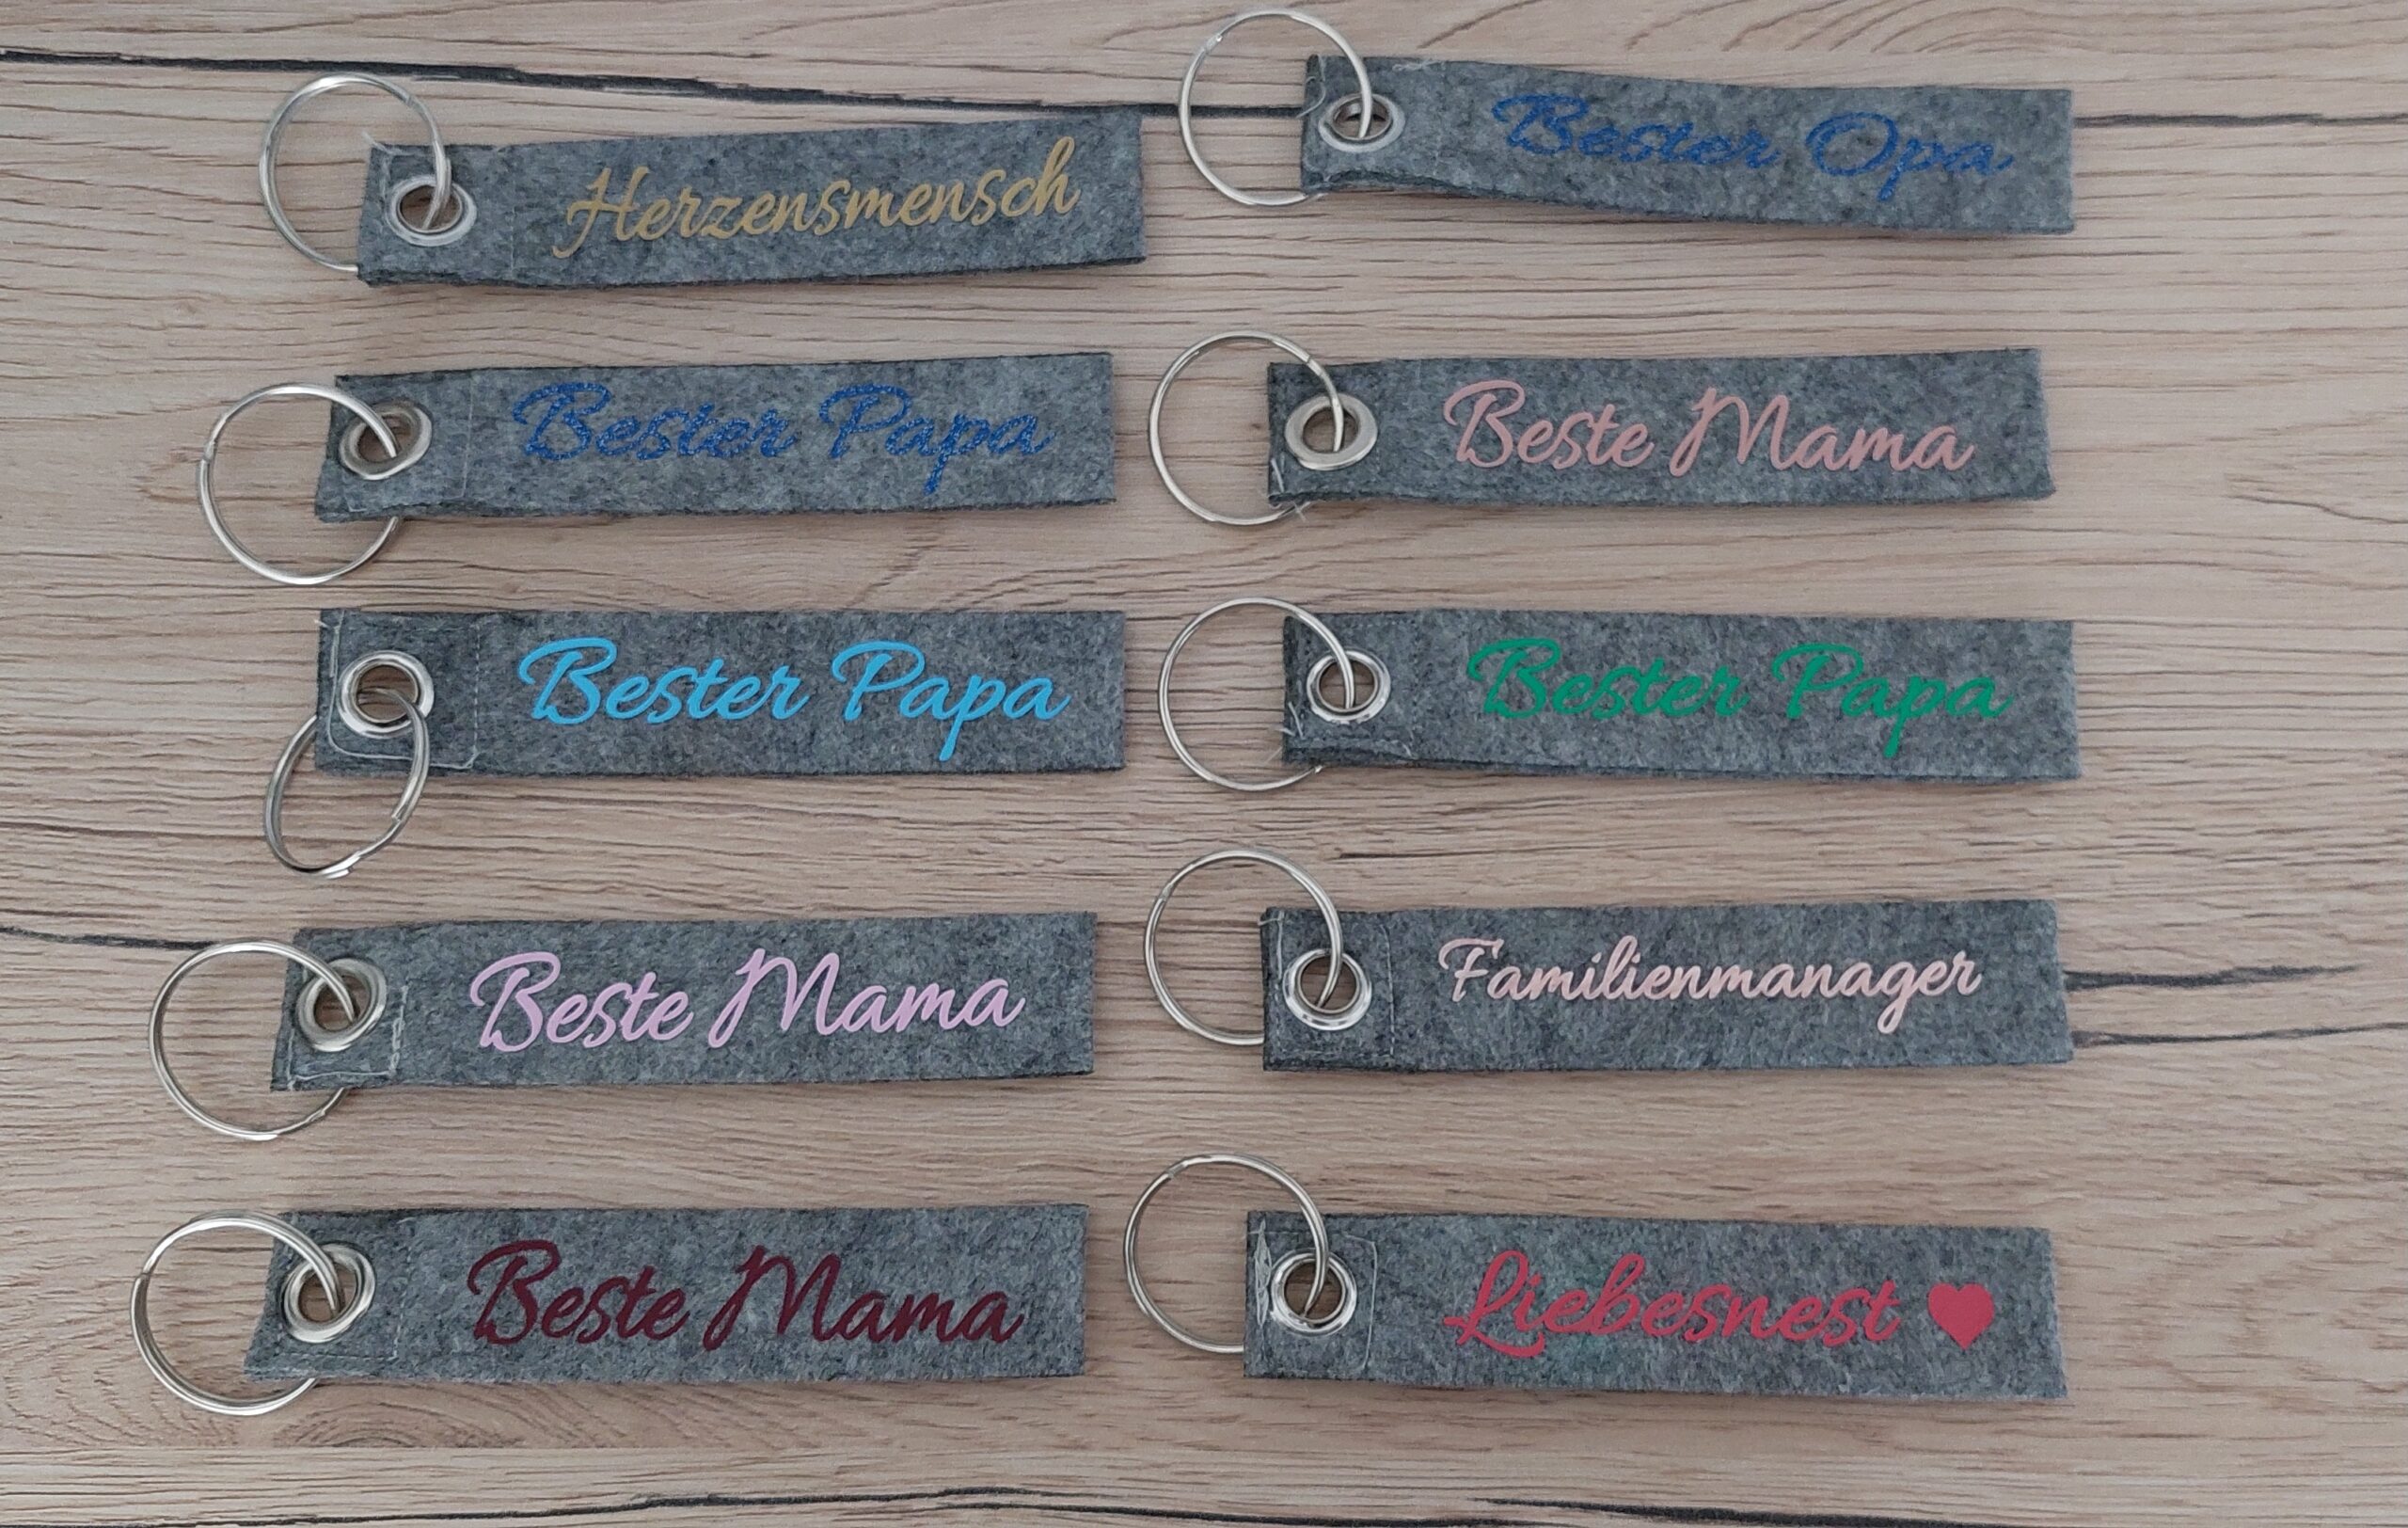 Herzensmensch
Bester Opa
Bester Papa
Beste Mama
Bester Papa
Bester Papa
Beste Mama
Familienmanager
Beste Mama
Liebesnest ♥